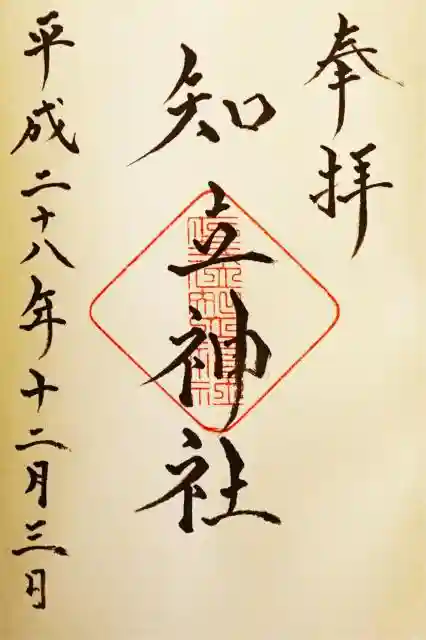 奉拝
知立神社
平成二十八年十二月三日